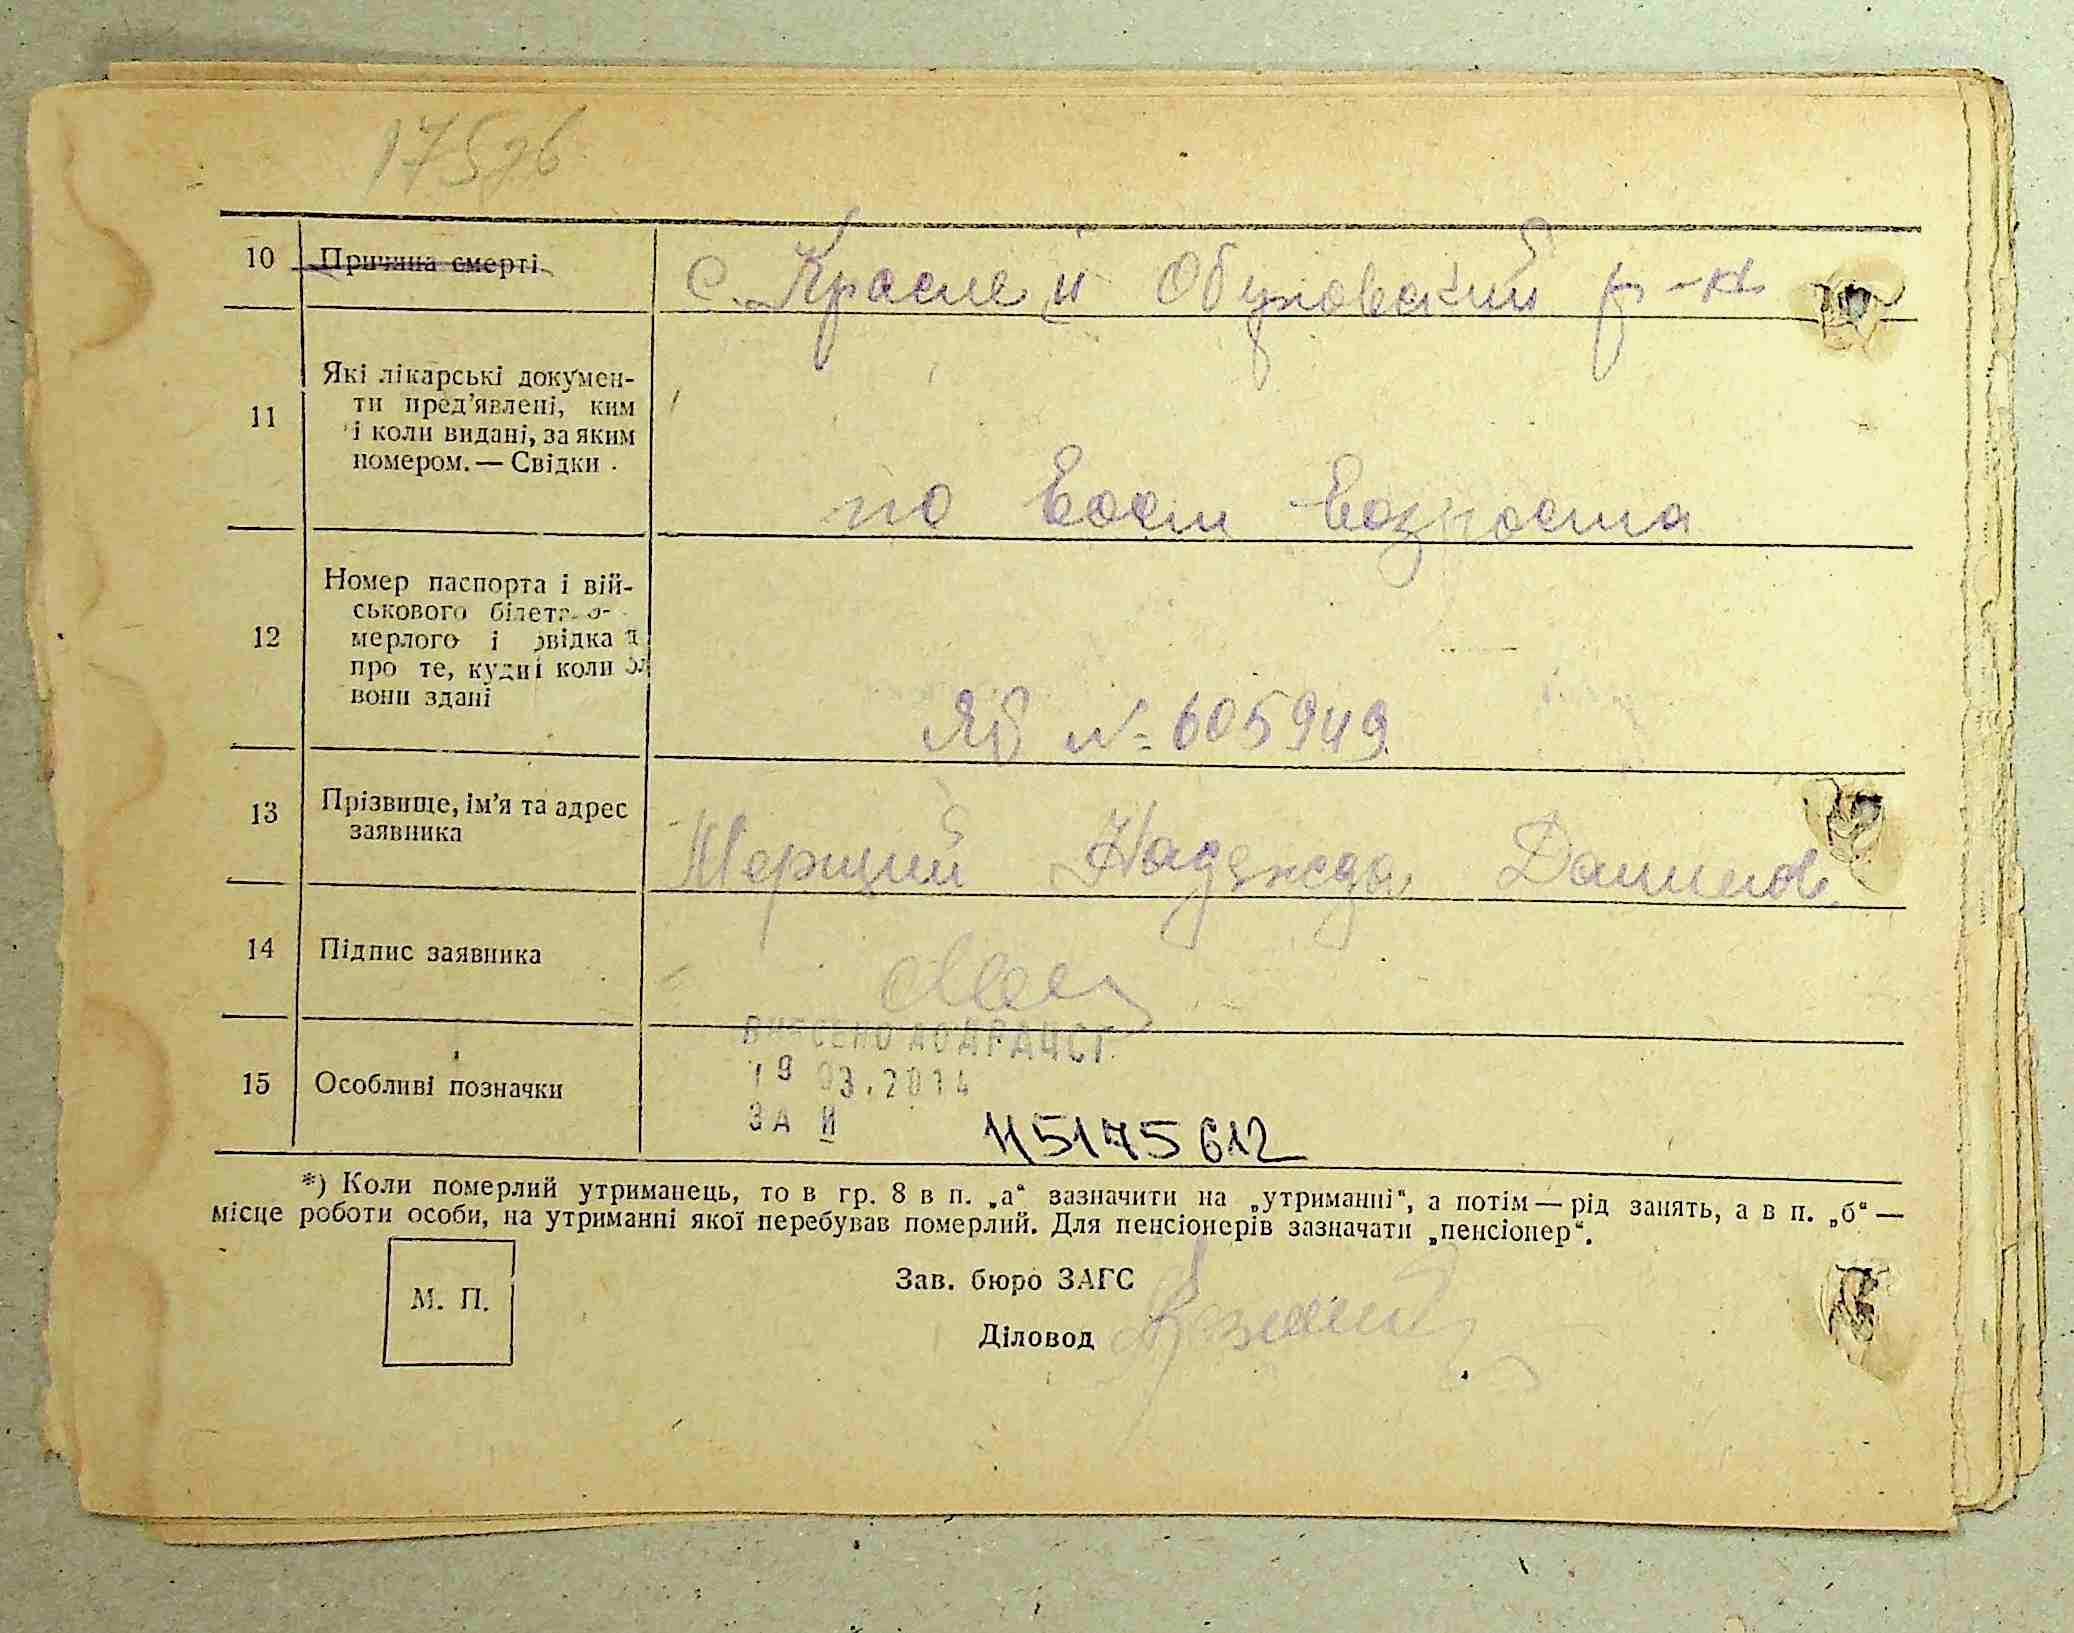 175
10 Причина смерті с. Красне й Обуховский р-н
11 Які лікарські докумен-
ти пред'явлені, ким
і коли видані, за яким
номером. — Свідки
по возроста
12 Номер паспорта і вій-
ськового білета
мерлого і
про те, куди і коли
вони здані
ЯБ № 605949
13 Прізвище, ім'я та адрес
заявника
Надежда Данилов.
14 Підпис заявника
ВНЕСЕНО ДО ДРАЦСГ
19 03.2014
15 Особливі позначки
ЗА № 115175612
*) Коли померлий утриманець, то в гр. 8 в п. „а“ зазначити на „утриманні“, а потім — рід занять, а в п. „б“ —
місце роботи особи, на утриманні якої перебував померлий. Для пенсіонерів зазначати „пенсіонер“.
М. П.
Зав. бюро ЗАГС
Діловод